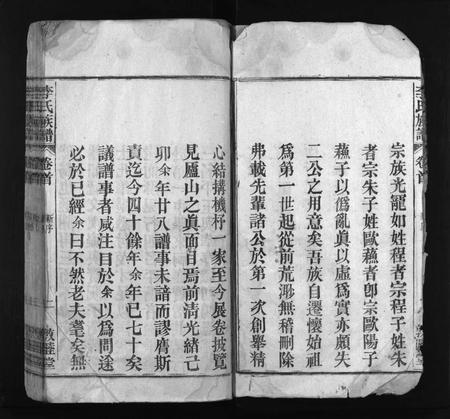 李氏族譜
卷首
宗族光寵如姓程者宗程子姓朱
者宗朱子姓歐蘓者卽宗歐陽子
蘓子以僞亂眞以虛爲實亦頗失
二公之用意矣吾族自遷懷始祖
爲第一世起從前荒渺無稽刪除
弗載先輩諸公於第一次創舉精
心結搆機杼一家至今展卷披覽
見廬山之眞面目焉前淸光緖己
卯余年廿八譜事未諳而謬膺斯
責迄今四十餘年余年已七十矣
議譜事者咸注曰於余以爲問途
必於已經余曰不然老夫耄矣無
李氏族譜
卷首
新序
敦睦堂